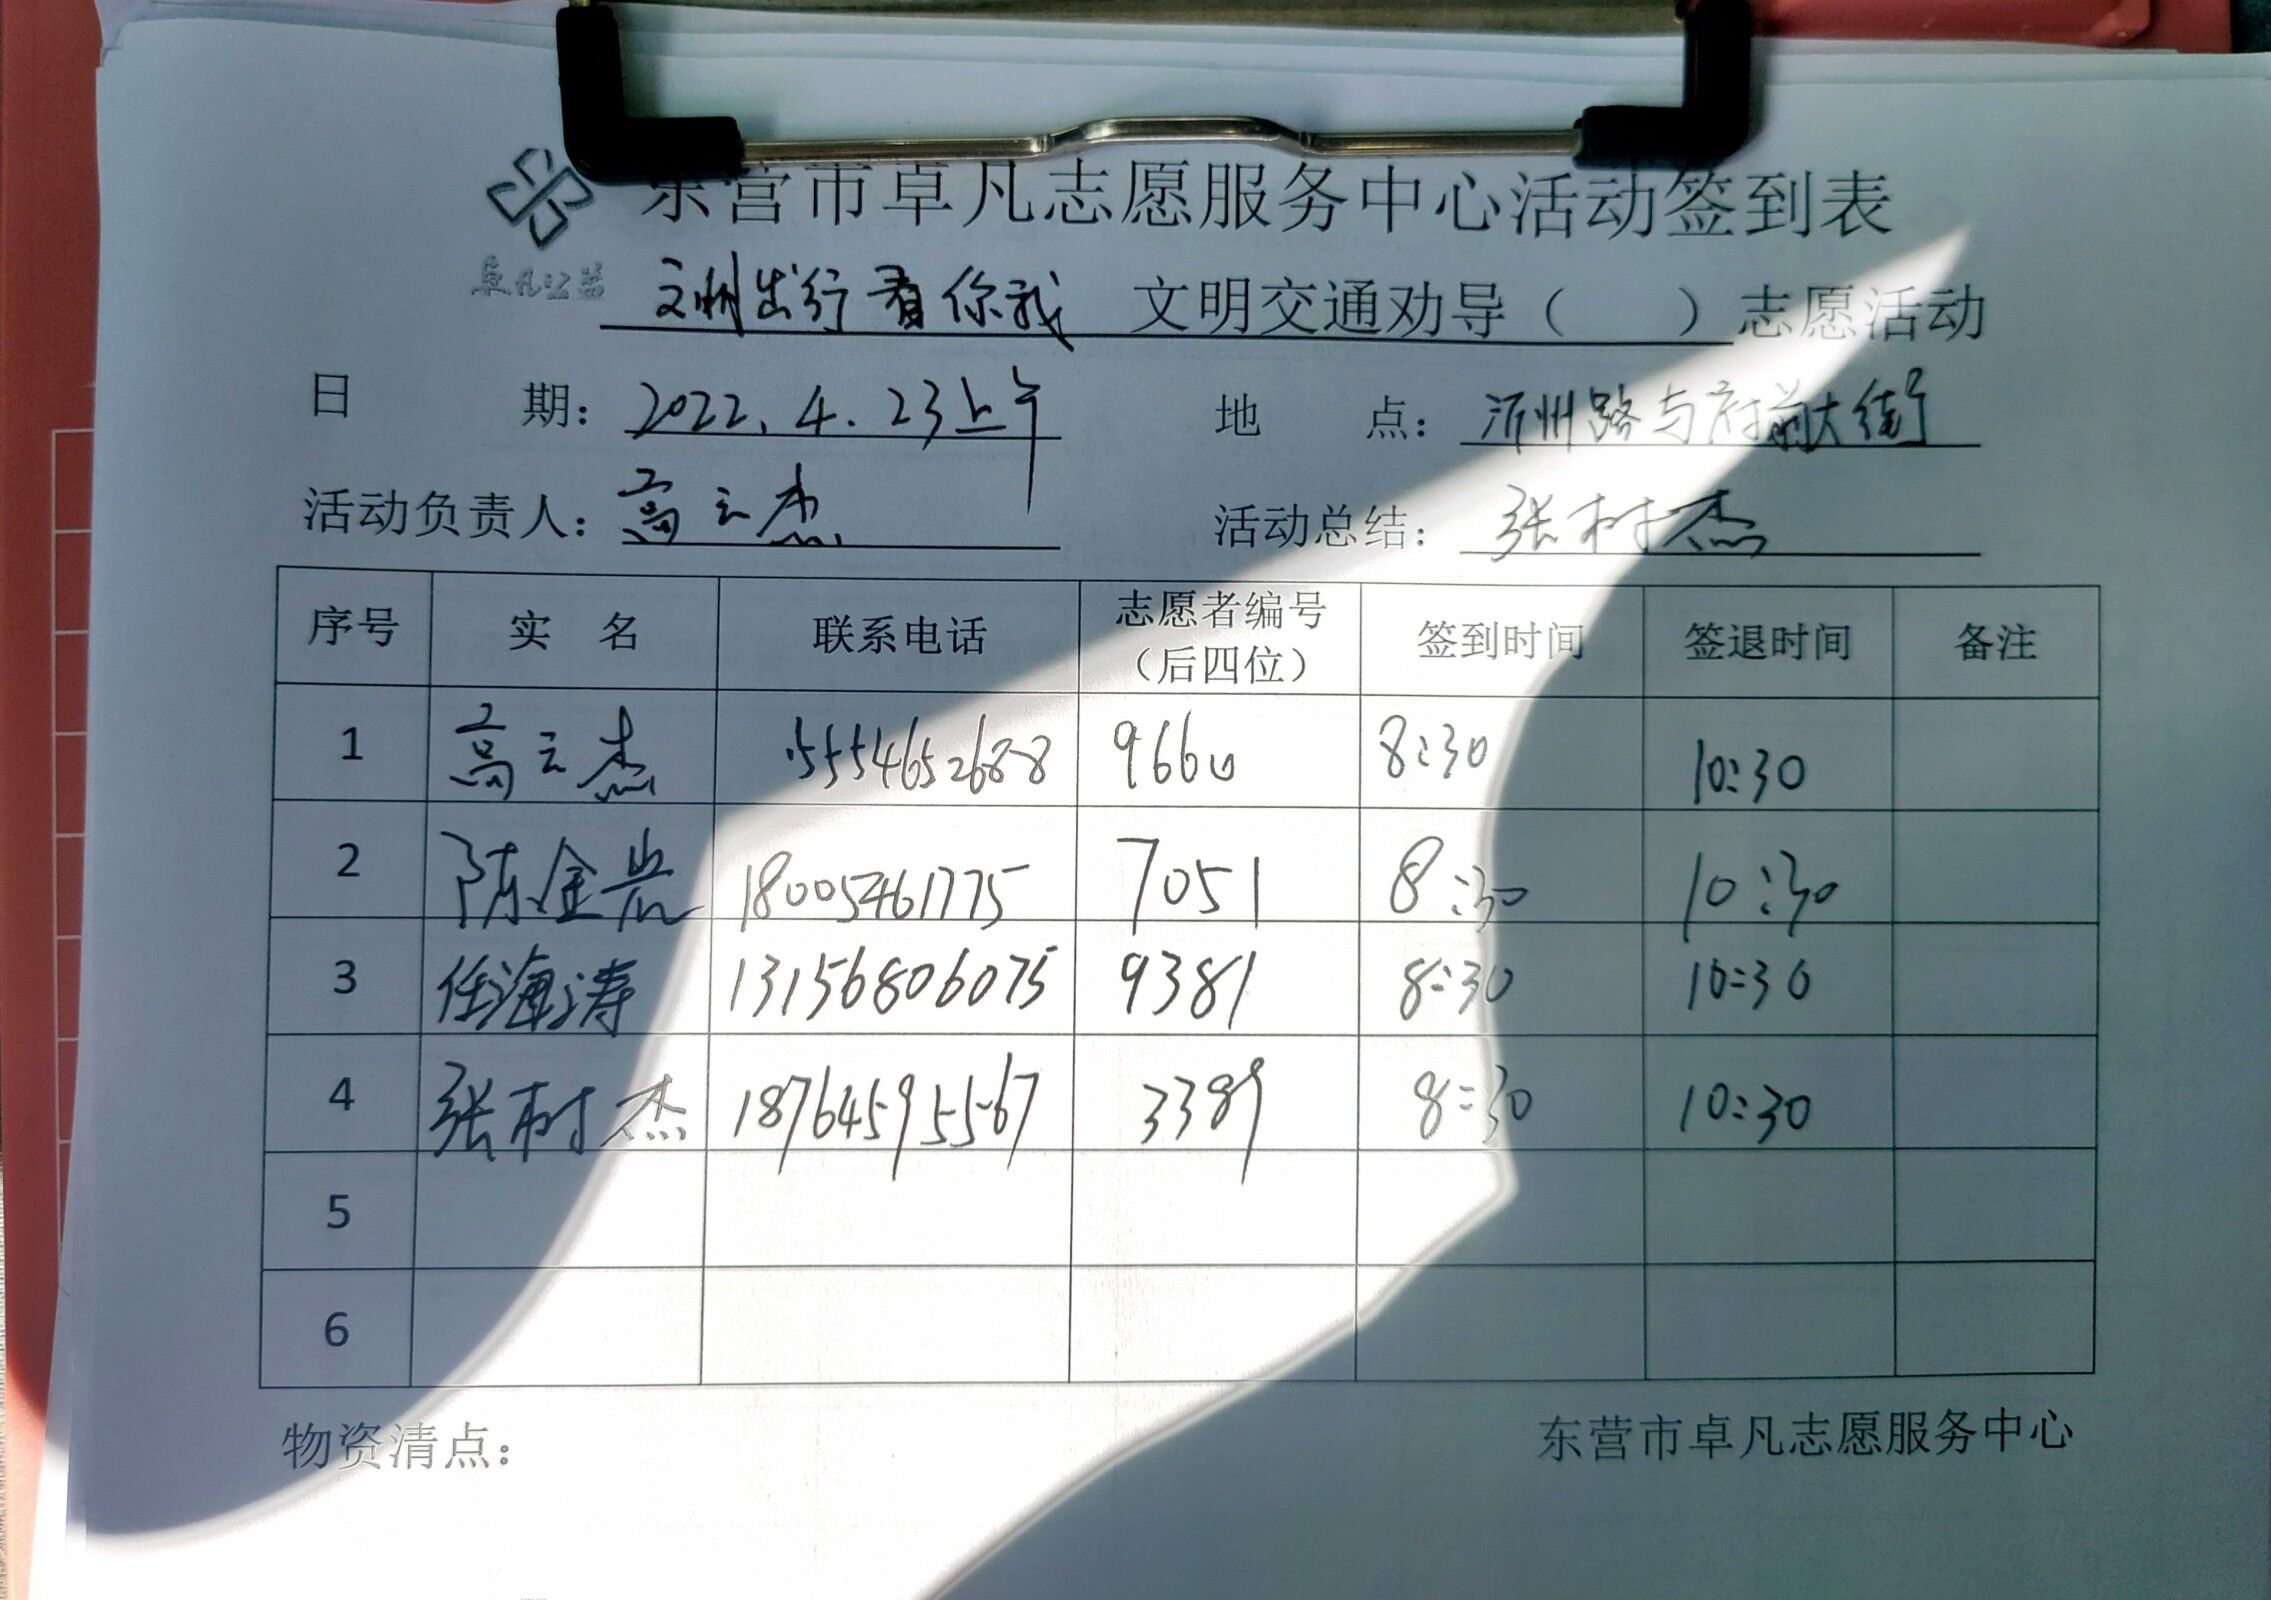 东营市卓凡志愿服务中心活动签到表
卓凡公益
出行看你我 文明交通劝导（ ）志愿活动
日 期：2022.4.23上午 地 点：沂州路与府前大街
活动负责人：高云杰 活动总结：张树杰
序号 实 名 联系电话 志愿者编号（后四位） 签到时间 签退时间 备注
1 高云杰 15554652688 9660 8:30 10:30
2 陈金岩 18005461775 7051 8:30 10:30
3 任海涛 13156806075 9381 8:30 10:30
4 张树杰 18764595567 3389 8:30 10:30
5
6
物资清点： 东营市卓凡志愿服务中心